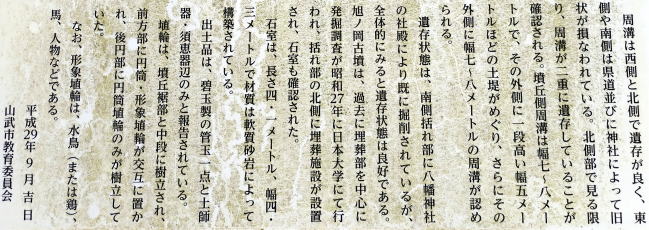 周溝は西側と北側で遺存が良く、東
側や南側は県道並びに神社によって旧
状が損なわれている。北側部で見る限
り、周溝が二重に遺存していることが
確認される。墳丘側周溝は幅七～八メー
トルで、その外側に一段高い幅五メー
トルほどの土堤がめぐり、さらにその
外側に幅七～八メートルの周溝が認め
られる。
遺存状態は、南側括れ部に八幡神社
の社殿により既に掘削されているが、
全体的にみると遺存状態は良好である。
旭ノ岡古墳は、過去に埋葬部を中心に
発掘調査が昭和27年に日本大学にて行
われ、括れ部の北側に埋葬施設が設置
され、石室も確認された。
石室は、長さ四・一メートル、幅四・
三メートルで材質は軟質砂岩によって
構築されている。
出土品は、碧玉製の管玉一点と土師
器・須恵器辺のみと報告されている。
埴輪は、墳丘裾部と中段に樹立され、
前方部に円筒・形象埴輪が交互に置か
れ、後円部に円筒埴輪のみが樹立して
いた。
なお、形象埴輪は、水鳥（または鶏）、
馬、人物などである。
平成29年9月吉日
山武市教育委員会